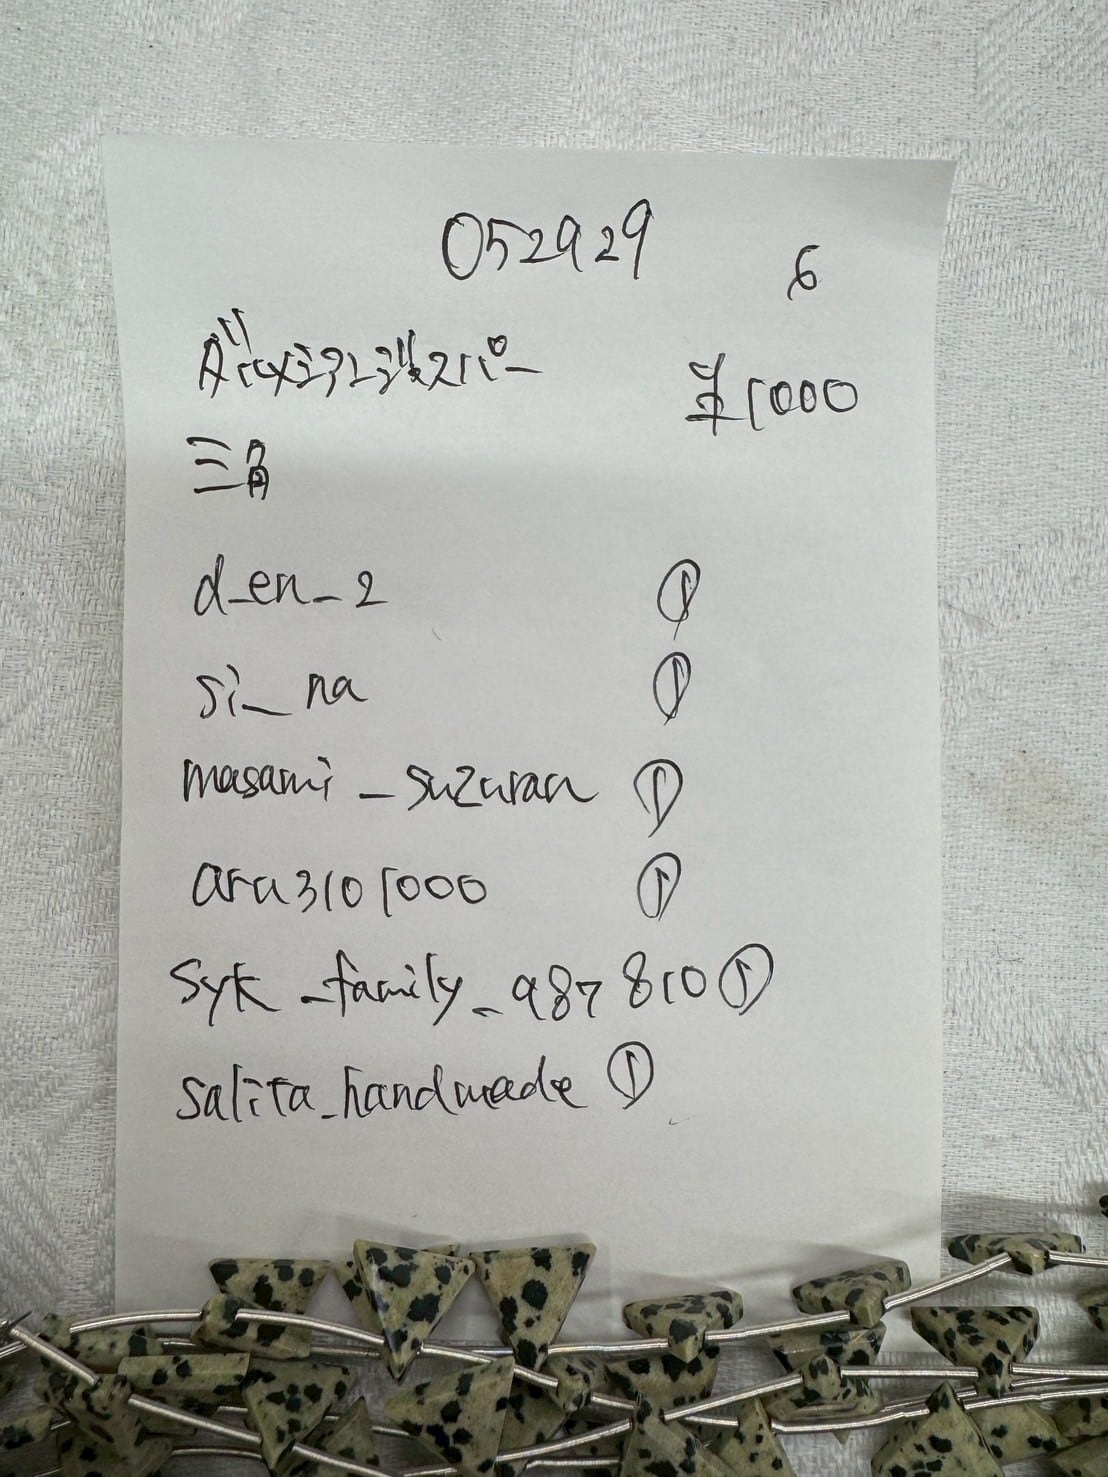 052929
6
ダルメシアンジャスパー
¥1000
三角
d_en_2 ①
si_na ①
masami_suzuran ①
ara3101000 ①
syk_family_987810 ①
salita_handmade ①